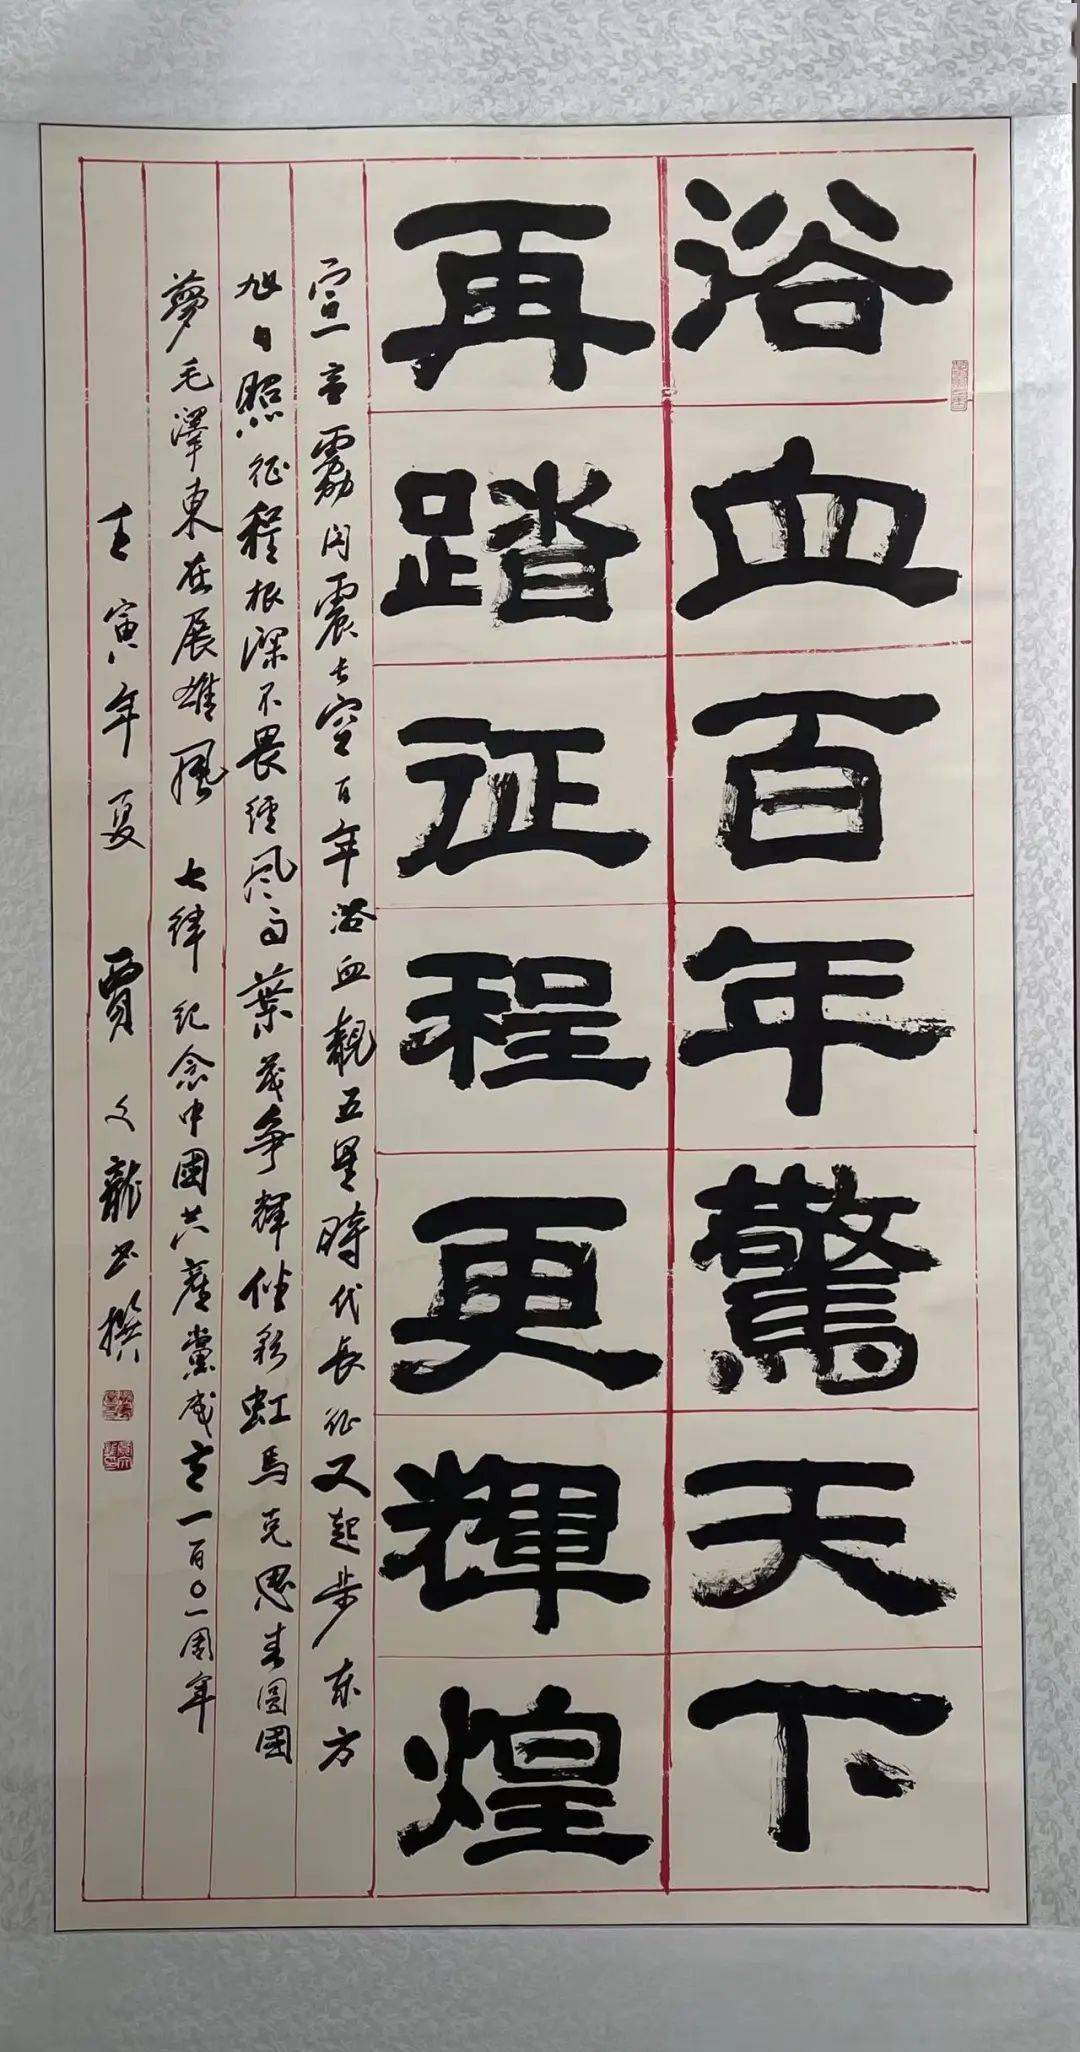 浴血百年驚天下
再踏征程更輝煌
宣言霹雳闪震長空百年浴血靓五星時代長征又起步东方
旭日照征程根深不畏經风雨葉茂争輝似彩虹馬克思主圆國
夢毛澤東在展雄風 七律 纪念中國共產黨成立一百〇一周年
壬寅年夏 賈文龍书撰